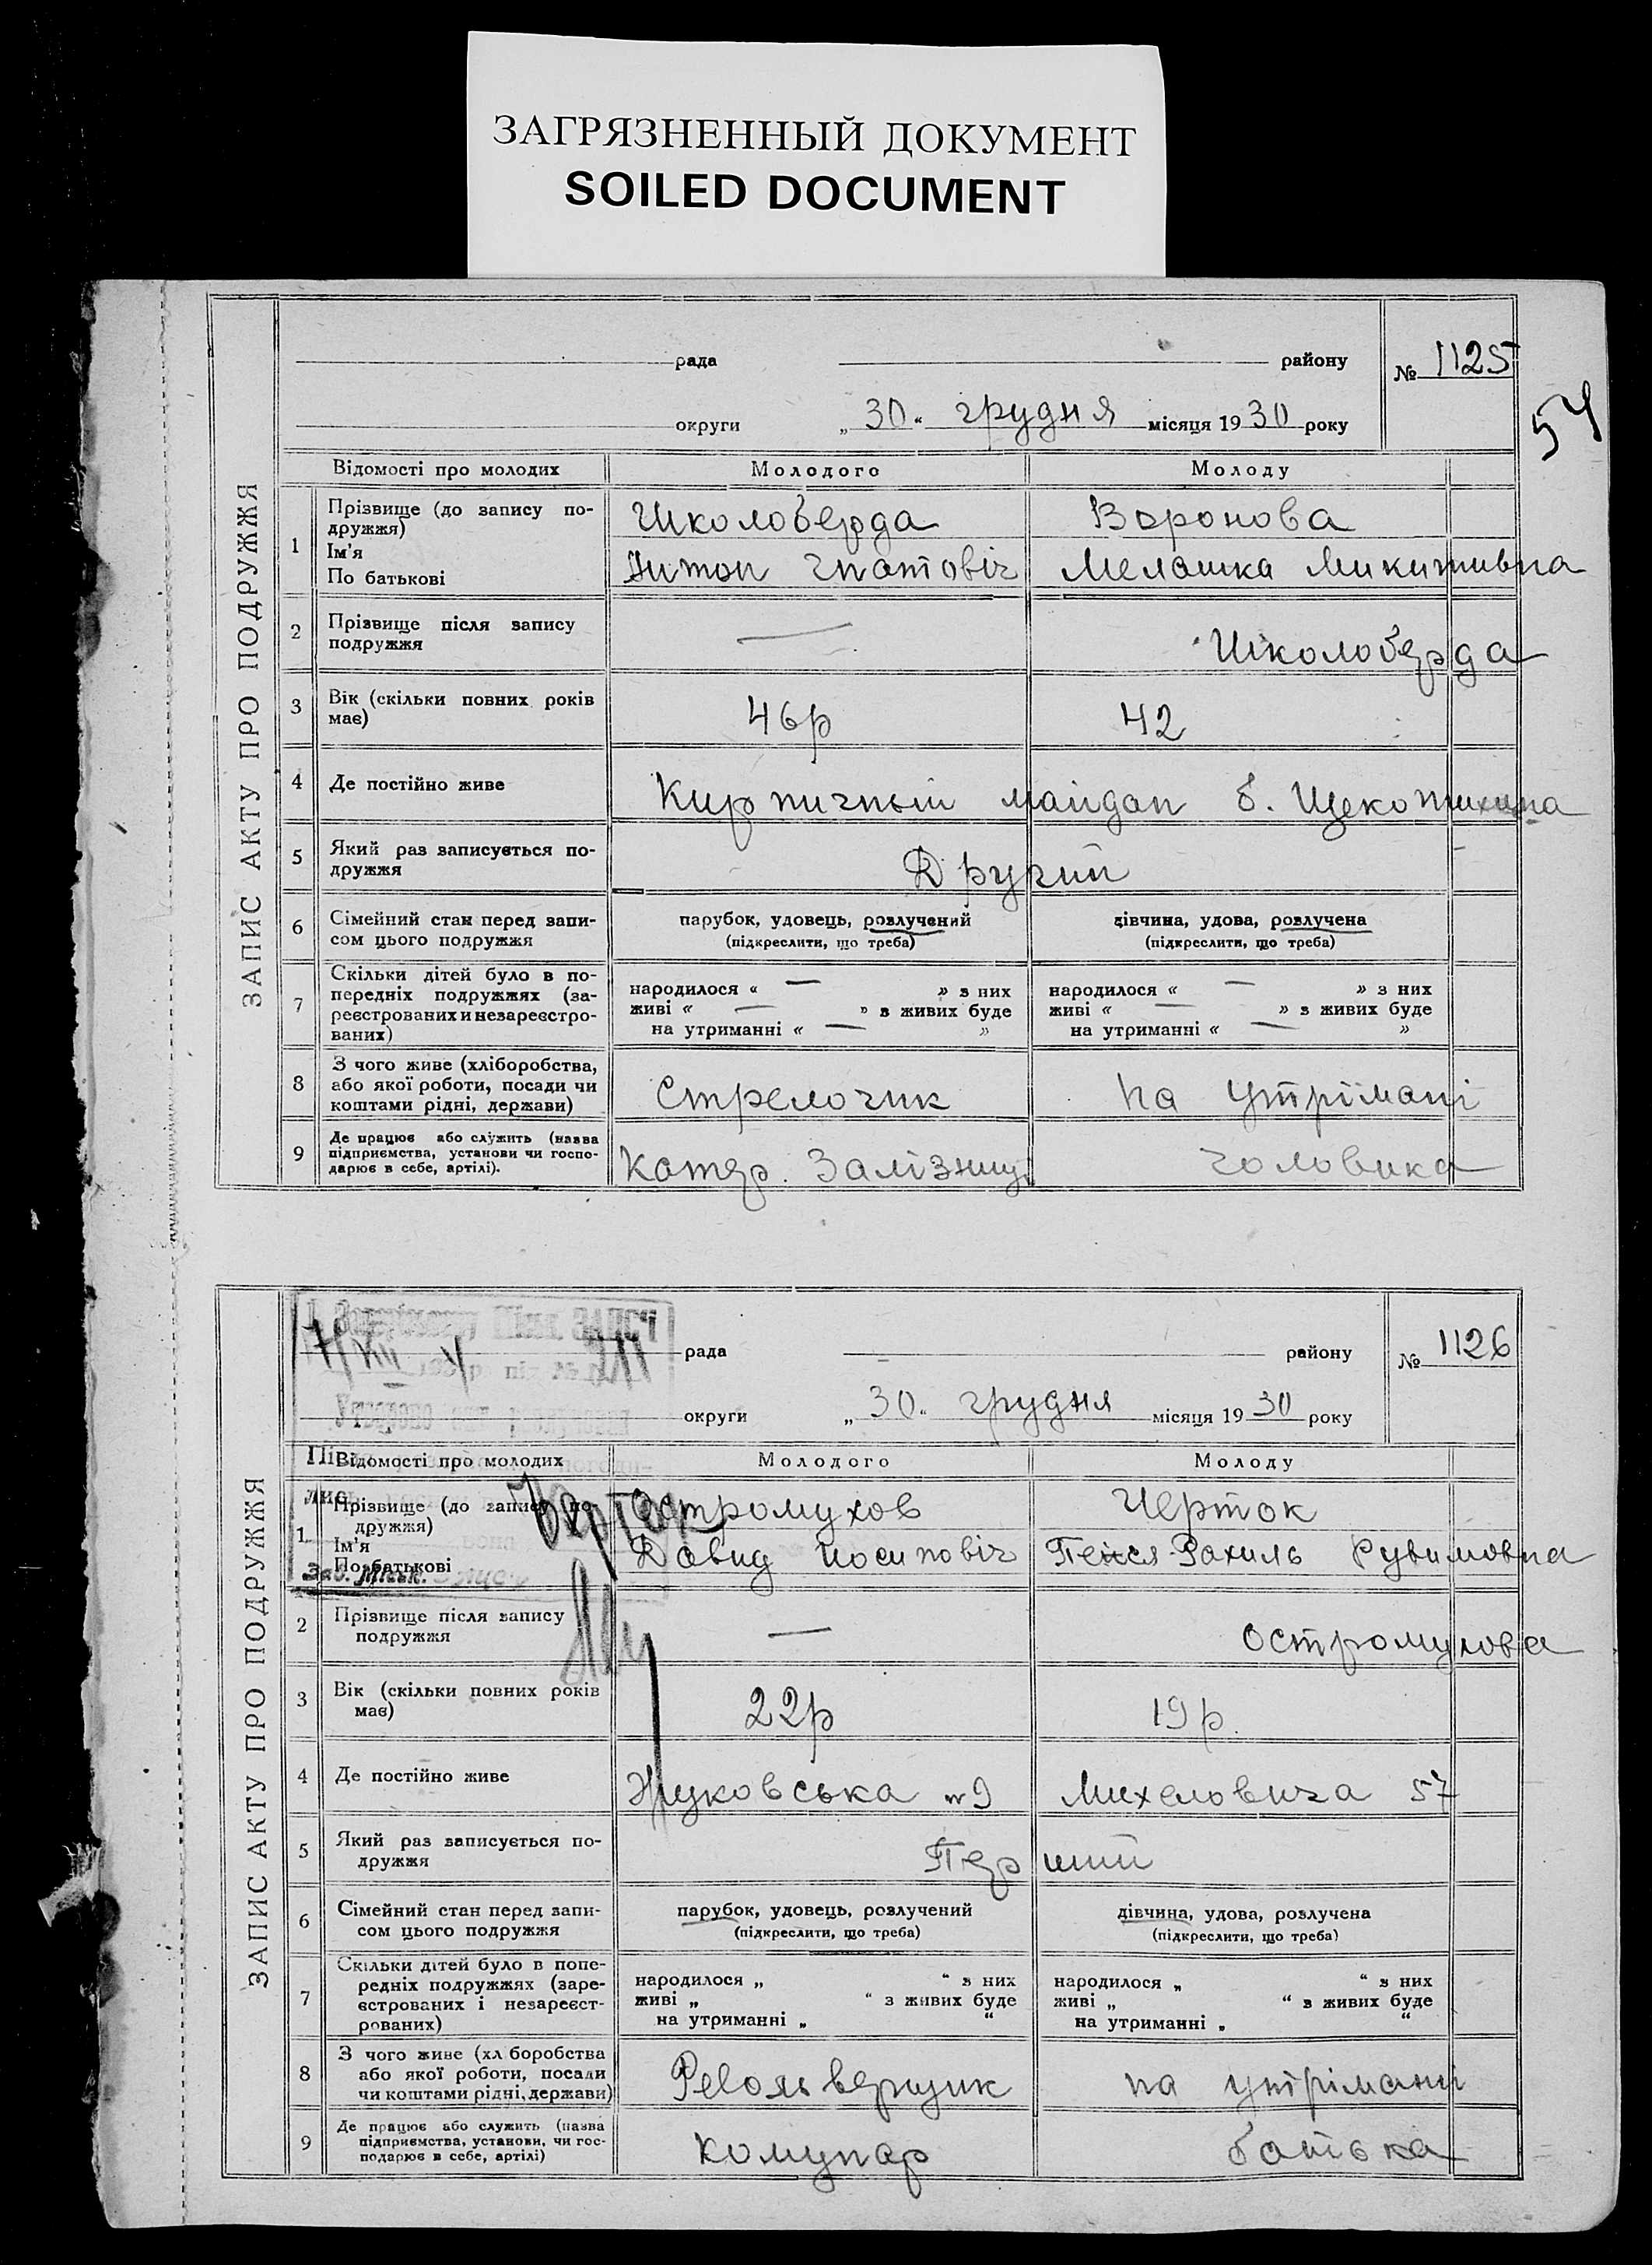 ЗАГРЯЗНЕННЫЙ ДОКУМЕНТ
SOILED DOCUMENT
ЗАПИС АКТУ ПРО ПОДРУЖЖЯ
рада району № 1125
54
округи „30“ грудня місяця 1930 року
Відомості про молодих Молодого Молоду
1 Прізвище (до запису по-
дружжя)
Ім'я
По батькові
Школоберда Воронова
Антон Гнатовіч Мелашка Микитивна
2 Прізвище після запису
подружжя
— Школоберда
3 Вік (скільки повних років
має)
46р 42
4 Де постійно живе Кирпичный майдан б. Щекотихина
5 Який раз записується по-
дружжя
Другий
6 Сімейний стан перед запи-
сом цього подружжя
парубок, удовець, розлучений дівчина, удова, розлучена
(підкреслити, що треба) (підкреслити, що треба)
7 Скільки дітей було в по-
передніх подружжях (за-
реєстрованих и незареєстро-
ваних)
народилося « — » з них народилося « — » з них
живі « — » в живих буде живі « — » з живих буде
на утриманні « — » на утриманні « — »
8 З чого живе (хліборобства,
або якої роботи, посади чи
коштами рідні, держави)
Стрелочник на утрімані
9 Де працює або служить (назва
підприємства, установи чи госпо-
дарює в себе, артілі).
Катер. Залізниці чоловика
ЗАПИС АКТУ ПРО ПОДРУЖЖЯ
рада району № 1126
округи „30“ грудня місяця 1930 року
Відомості про молодих Молодого Молоду
1 Прізвище (до запису по-
дружжя)
Ім'я
По батькові
Остромухов Черток
Давид Иосиповіч Пейся-Рахиль Рувимовна
2 Прізвище після запису
подружжя
— Остромухова
3 Вік (скільки повних років
має)
22р 19р.
4 Де постійно живе Жуковська № 9 Михеловича 57
5 Який раз записується по-
дружжя
Перший
6 Сімейний стан перед запи-
сом цього подружжя
парубок, удовець, розлучений дівчина, удова, розлучена
(підкреслити, що треба) (підкреслити, що треба)
7 Скільки дітей було в попе-
редніх подружжях (заре-
єстрованих і незареєст-
рованих)
народилося „ “ з них народилося „ “ з них
живі „ “ з живих буде живі „ “ в живих буде
на утриманні „ “ на утриманні „ “
8 З чого живе (хл боробства
або якої роботи, посади
чи коштами рідні, держави)
Револьверщик на утрімани
9 Де працює або служить (назва
підприємства, установи, чи гос-
подарює в себе, артілі)
Комунар батька